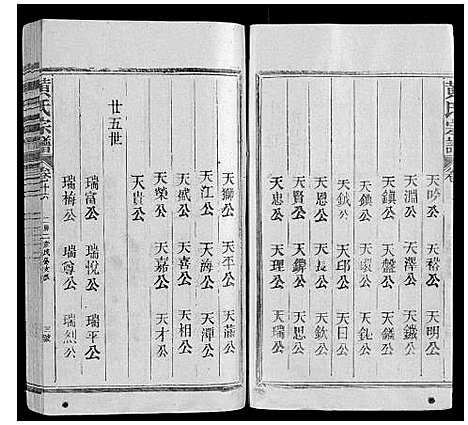 黃氏宗譜
天吟公 天裕公 天明公
天淵公 天鑑公 天鐵公
天鎮公 天盤公
天煥公
天鉞公 天邱公 天日公
天恩公 天長公 天欽公
天賢公 天錦公 天思公
天忠公 天理公 天瑞公
天獅公 天平公
天江公 天海公 天潭公
天威公 天喜公 天相公
天榮公 天嘉公 天才公
天貴公
廿五世
瑞富公 瑞悅公 瑞平公
瑞梅公 瑞尊公 瑞烈公
黃氏宗譜 卷廿六 三號